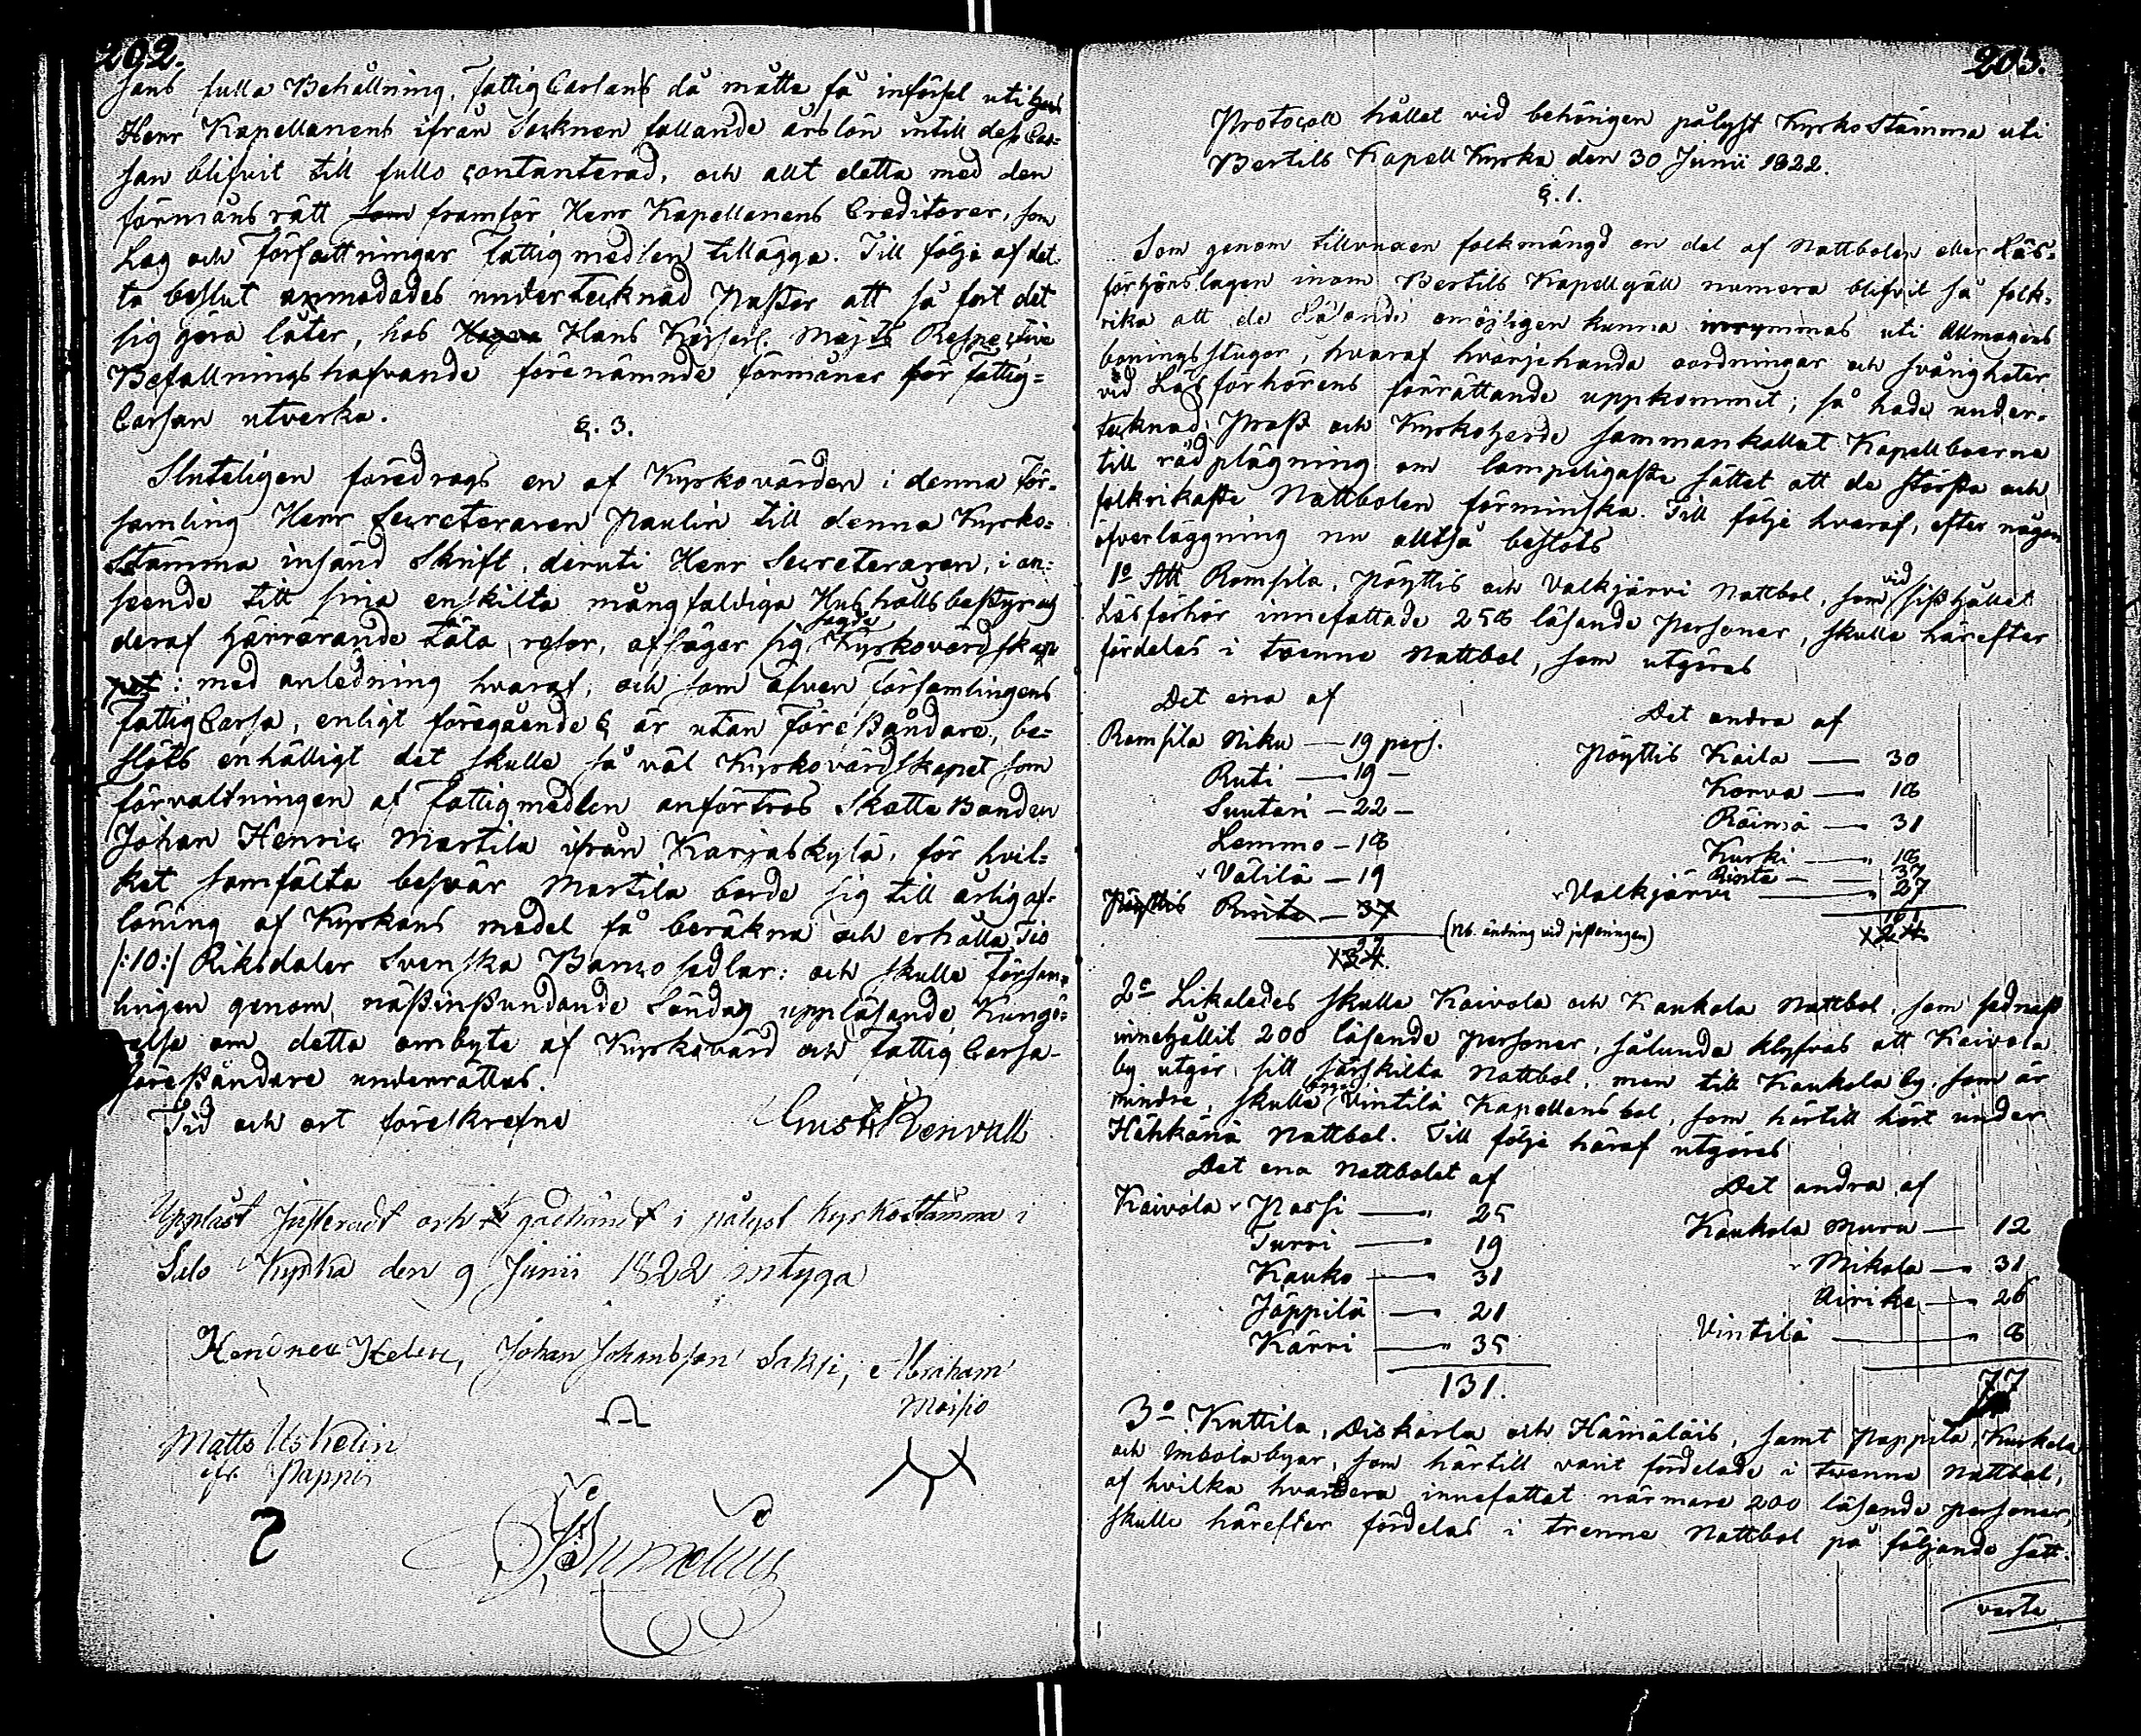 202.
sans fulla Behållning, Fattig Cassans då måtte få införsel uti
Herr Kapellanens ifrån Socknen fallande årslön intill dess Cas-
san blifvit till fullo contanterad, och allt detta med den
förmånsrätt som framför Herr Kapellanens Creditorer, som
Lag och Författningar Fattigmedlen tillägga. Till följe af det-
ta beslut anmodades undertecknad Pastor att så fort det
sig göra låter, hos Hans Kejserl. Majts Respective
Befallningshafvande förenämnde förmåner för Fattig-
Cassan utverka.
§. 3.
Sluteligen föredrogs en af Kyrkovärden i denna För-
samling Herr Secreteraren Paulin till denna Kyrko-
Stämma insänd Skrift, deruti Herr Secreteraren, i an-
seende till sina enskilta mångfaldiga Hushållsbestyr och
deraf härrörande täta resor, afsäger sig sagde Kyrkovärdskap
pet: med anledning hvaraf, och som äfven Församlingens
Fattig Cassa, enligt föregående § är utan Föreståndare, be-
slöts enhälligt det skulle så väl Kyrkovärdskapet som
förvaltningen af Fattigmedlen anförtros Skatte Bonden
Johan Henric Martila ifrån Karjaskylä, för hvil-
ket samfälta besvär Martila borde sig till årlig af-
löning af Kyrkans medel få beräkna och erhålla Tio
/:10:/ Riksdaler Svenska Banco sedlar: och skulle Försam-
lingen genom nästinstundande Söndag uppläsande Kungö-
relse om detta ombyte af Kyrkovärd och Fattig Cassa-
föreståndare underrättas.
Tid och ort föreskrefne
Gust: Renvall
Uppläst Justeradt och godkändt i pålyst Kyrkostämma i
Salo Kyrka den 9 Junii 1822 intyga
Johan Johansson Saksi, Abraham
Moisio
Matts Uskelin
ifr. Pappi
203.
Protocoll hållet vid behörigen pålyst Kyrkostämma uti
Bertils Kapell Kyrka den 30 Junii 1822.
§. 1.
Som genom tillvuxen folkmängd en del af Nattbolen eller Läs-
förhörslagen inom Bertils Kapellgäll numera blifvit så folk-
rika att de Läsande omöjligen kunna inrymmas uti Allmogens
boningsstugor, hvaraf hvarjehanda oordningar och svårigheter
vid Läsförhörens förrättande uppkommit; så hade under-
tecknad, Prost och Kyrkoherde sammankallat Kapellboerne
till rådplägning om lämpeligaste sättet att de största och
folkrikaste Nattbolen förminska. Till följe hvaraf, efter någon
öfverläggning nu alltså beslöts
1o Att Romsila, Pöyttis och Valkjärvi Nattbol, som vid sisthållet
Läsförhör innefattade 258 läsande Personer, skulle härefter
fördelas i tvenne Nattbol, som utgöras
Det ena af
Romsila Niku — 19 pers.
Ruti — 19 —
Suutari — 22 —
Lemmo — 18
Välilä — 19
Pöyttis Rinta — 37
97
134.
(Nb. ändring vid justeringen)
Det andra af
Pöyttis Kaila — 30
Korva — 18
Räimä — 31
Kurki — 18
Rinta — 37
Valkjärvi — 27
161
124.
2o Likaledes skulle Kaivola och Kaukola Nattbol, som sednast
innehållit 200 läsande Personer, sålunda klyfvas att Kaivola
by utgör sitt särskilta Nattbol, men till Kaukola by, som är
mindre, skulle Vintilä Kapellans bol, som härtill hört under
Hähkänä Nattbol. Till följe häraf utgöres
Det ena Nattbolet af
Kaivola Passi — 25
Turri — 19
Kauko — 31
Jäppilä — 21
Kärri — 35
131.
Det andra af
Kaukola Muru — 12
Mikola — 31
Airike — 26
Vintilä — 8
77
3o Kuttila, Diskarla och Hämäläis, samt Pappila, Kurkela
och Imbola byar, som härtill varit fördelade i tvenne Nattbol,
af hvilka hvardera innefattat närmare 200 läsande personer,
skulle härefter fördelas i trenne Nattbol på följande sätt.
verte